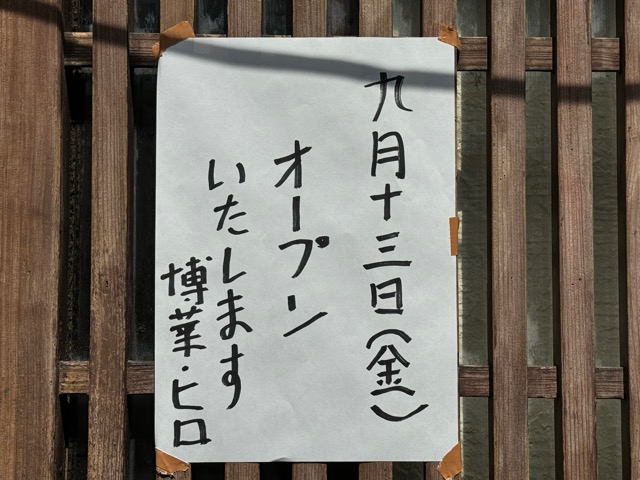 九月十三日(金)
オープン
いたします
博菜・ヒロ